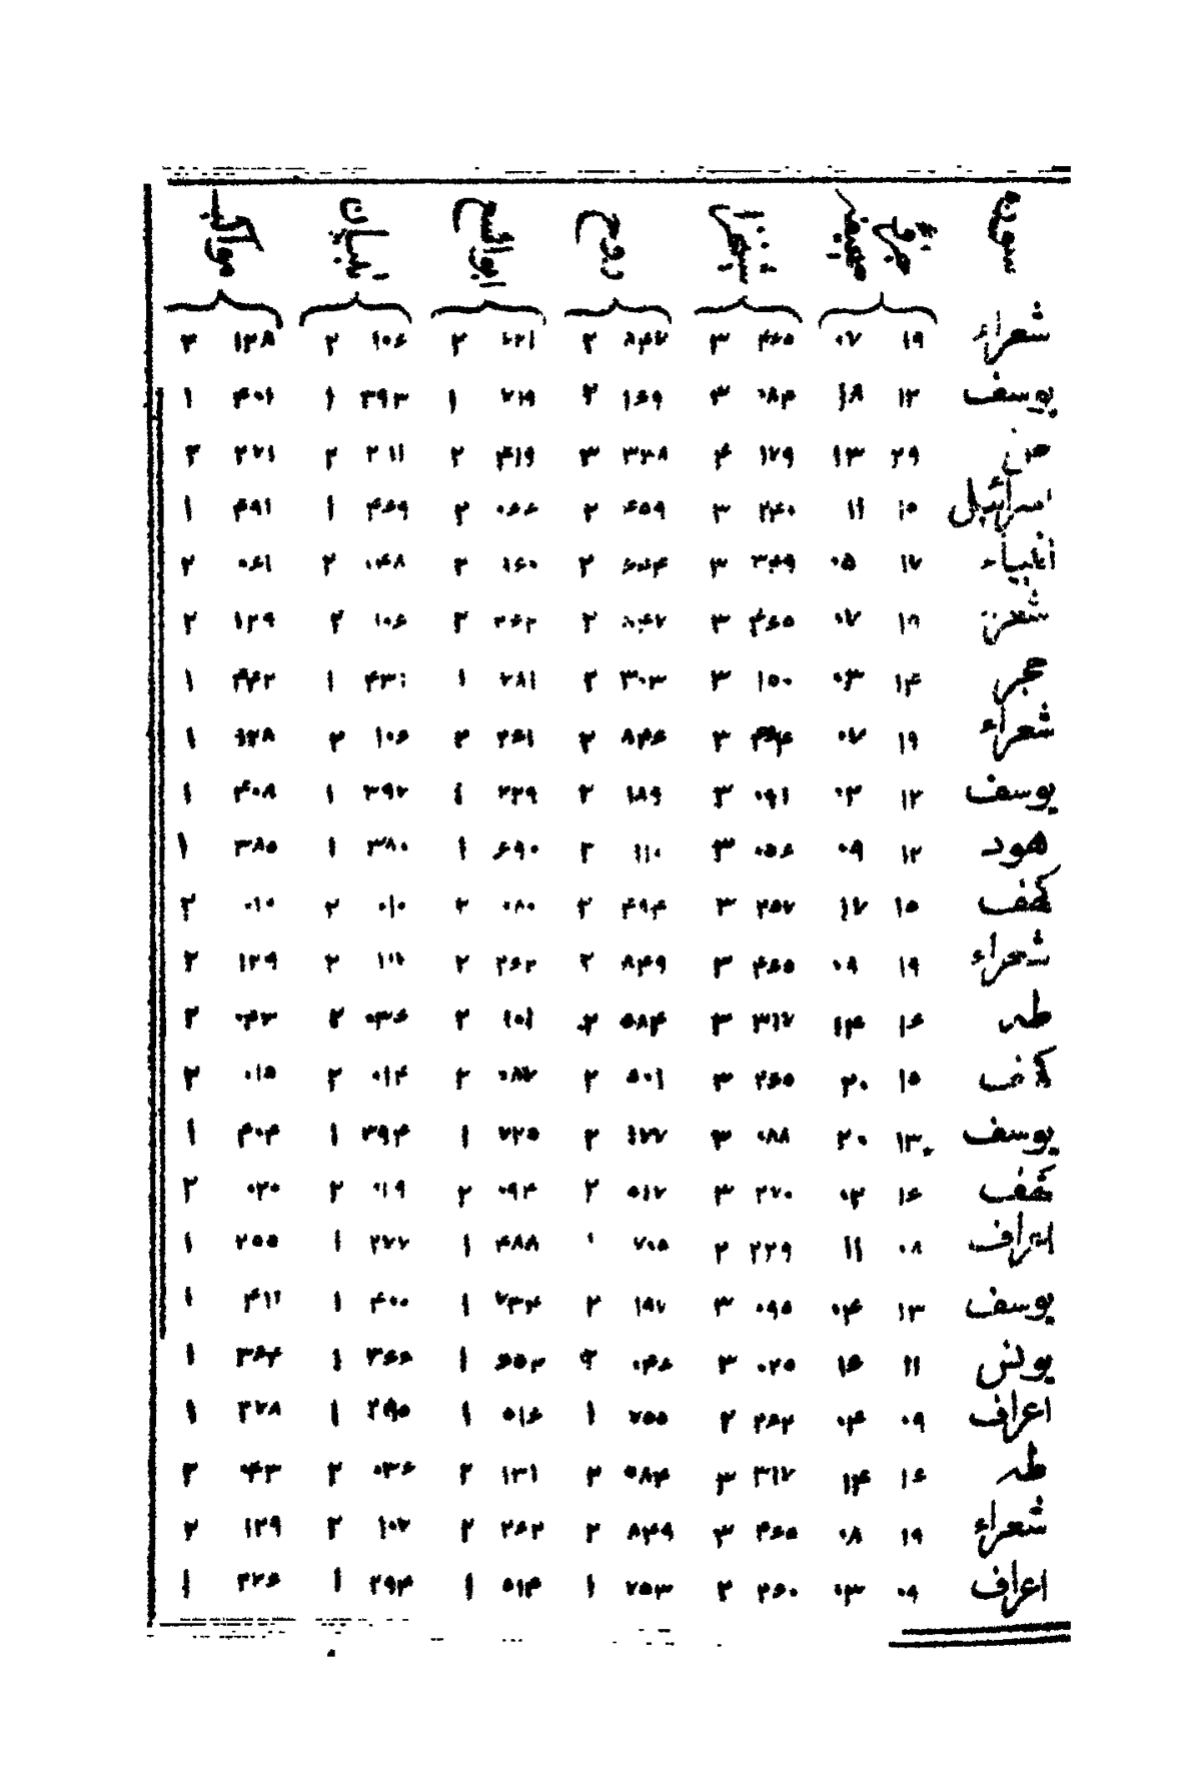 سوره صفحه منتخب روح ابوالفتوح تبیان مواهب
شعراء ۱۹ ۰۷ ۴۶۵ ۳ ۸۴۷ ۲ ۲۶۱ ۲ ۱۰۶ ۲ ۱۲۸ ۲
یوسف ۱۲ ۱۸ ۰۸۴ ۳ ۱۶۹ ۲ ۷۱۹ ۱ ۳۹۳ ۱ ۴۰۱ ۱
ص ۲۹ ۱۳ ۱۷۹ ۴ ۳۳۸ ۳ ۴۱۹ ۲ ۲۱۱ ۲ ۲۷۱ ۲
اسرائیل ۱۵ ۱۱ ۲۴۰ ۳ ۴۵۹ ۲ ۰۶۶ ۲ ۴۶۹ ۱ ۴۹۱ ۱
انبیاء ۱۷ ۰۵ ۳۴۹ ۳ ۶۲۴ ۲ ۱۶۰ ۲ ۰۴۸ ۲ ۰۶۱ ۲
شعراء ۱۹ ۰۷ ۴۶۵ ۳ ۸۴۷ ۲ ۲۶۲ ۲ ۱۰۶ ۲ ۱۲۹ ۲
حجر ۱۴ ۰۳ ۱۵۰ ۳ ۳۰۳ ۲ ۷۸۱ ۱ ۴۳۱ ۱ ۴۴۲ ۱
شعراء ۱۹ ۰۷ ۴۶۴ ۳ ۸۴۶ ۲ ۲۶۱ ۲ ۱۰۶ ۲ ۱۲۸ ۱
یوسف ۱۲ ۰۳ ۰۹۱ ۳ ۱۸۹ ۲ ۷۲۹ ۱ ۳۹۷ ۱ ۴۰۸ ۱
هود ۱۲ ۰۹ ۰۵۶ ۳ ۱۱۰ ۲ ۶۹۰ ۱ ۳۸۰ ۱ ۳۸۵ ۱
کهف ۱۵ ۱۷ ۲۵۷ ۳ ۴۹۴ ۲ ۰۸۰ ۲ ۰۱۰ ۲ ۰۱۰ ۲
شعراء ۱۹ ۰۸ ۴۶۵ ۳ ۸۴۹ ۲ ۲۶۲ ۲ ۱۰۷ ۲ ۱۲۹ ۲
طه ۱۶ ۱۴ ۳۱۷ ۳ ۵۸۴ ۲ ۱۰۱ ۲ ۰۳۶ ۲ ۰۴۳ ۲
کهف ۱۵ ۲۰ ۲۶۵ ۳ ۵۰۱ ۲ ۰۸۷ ۲ ۰۱۴ ۲ ۰۱۵ ۲
یوسف ۱۳ ۲۰ ۰۸۸ ۳ ۱۷۷ ۲ ۷۲۵ ۱ ۳۹۴ ۱ ۴۰۴ ۱
کهف ۱۶ ۰۲ ۲۷۰ ۳ ۵۱۷ ۲ ۰۹۴ ۲ ۰۱۹ ۲ ۰۲۰ ۲
اعراف ۰۸ ۱۱ ۲۲۹ ۲ ۷۰۵ ۱ ۴۸۸ ۱ ۲۷۷ ۱ ۲۵۵ ۱
یوسف ۱۳ ۰۴ ۰۹۵ ۳ ۱۹۷ ۲ ۷۳۴ ۱ ۴۰۰ ۱ ۴۱۱ ۱
یونس ۱۱ ۱۶ ۰۲۵ ۳ ۰۴۶ ۲ ۶۵۳ ۱ ۳۶۶ ۱ ۳۶۴ ۱
اعراف ۰۹ ۰۴ ۲۶۲ ۲ ۷۵۵ ۱ ۵۱۶ ۱ ۲۹۵ ۱ ۲۷۸ ۱
طه ۱۶ ۱۴ ۳۱۷ ۳ ۵۸۴ ۲ ۱۳۱ ۲ ۰۳۶ ۲ ۰۴۳ ۲
شعراء ۱۹ ۰۸ ۴۶۵ ۳ ۸۴۹ ۲ ۲۶۲ ۲ ۱۰۷ ۲ ۱۲۹ ۲
اعراف ۰۹ ۰۳ ۲۶۰ ۲ ۷۵۳ ۱ ۵۱۴ ۱ ۲۹۴ ۱ ۲۷۶ ۱